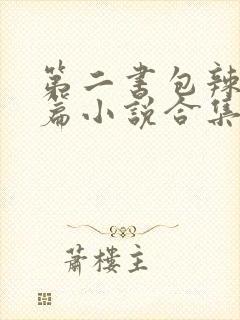 第二书包辣
篇小说合集
萧楼主